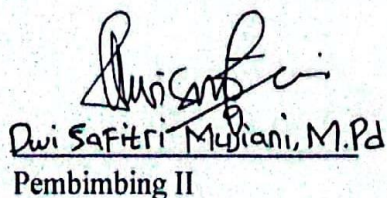 Dwi Safitri Mujiani, M.Pd
Pembimbing II